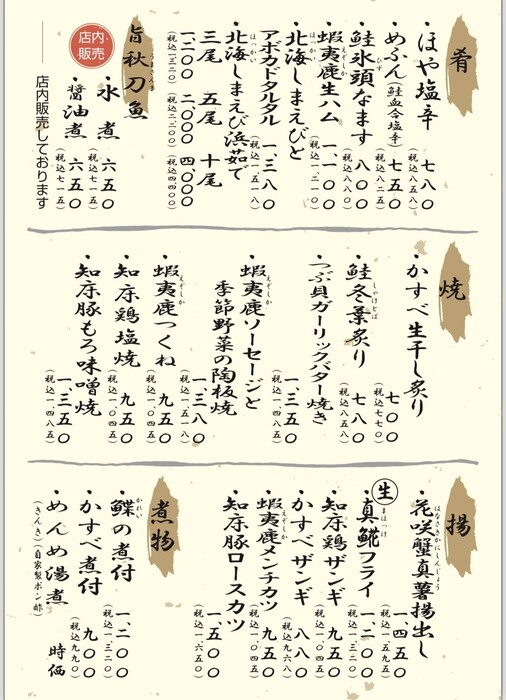 肴
・ほや塩辛 七八〇
(税込八五八)
・めふん(鮭血合塩辛) 七五〇
(税込八二五)
・鮭氷頭なます 八〇〇
ひず
(税込八八〇)
・蝦夷鹿生ハム 一、一〇〇
えぞしか
(税込一、二一〇)
・北海しまえびと
ほっかい
アボカドタルタル 一、三八〇
(税込一、五一八)
・北海しまえび浜茹で
ほっかい
三尾 五尾 十尾
一、二〇〇 二、〇〇〇 四、〇〇〇
(税込一、三二〇) (税込二、二〇〇) (税込四、四〇〇)
旨秋刀魚
うまさんま
・氷煮 六五〇
(税込七一五)
・醤油煮 六五〇
(税込七一五)
店内
・販売・
店内販売しております
焼
・かすべ生干し炙り 七〇〇
(税込七七〇)
・鮭冬葉炙り 七八〇
しゃけとば
(税込八五八)
・つぶ貝ガーリックバター焼き 一、三五〇
(税込一、四八五)
・蝦夷鹿ソーセージと
えぞしか
季節野菜の陶板焼 一、三八〇
(税込一、五一八)
・蝦夷鹿つくね 九五〇
えぞしか
(税込一、〇四五)
・知床鶏塩焼 九五〇
(税込一、〇四五)
・知床豚もろ味噌焼 一、三五〇
(税込一、四八五)
揚
・花咲蟹真薯揚出し 一、四五〇
はなさきかにしんじょう
(税込一、五九五)
生
・真𩸽フライ 一、二〇〇
まほっけ
(税込一、三二〇)
・知床鶏ザンギ 九五〇
(税込一、〇四五)
・かすべザンギ 八八〇
(税込九六八)
・蝦夷鹿メンチカツ 九五〇
えぞしか
(税込一、〇四五)
・知床豚ロースカツ 一、五〇〇
(税込一、六五〇)
煮物
・鰈の煮付 一、二〇〇
かれい
(税込一、三二〇)
・かすべ煮付 九〇〇
(税込九九〇)
・めんめ湯煮 時価
(きんき)(自家製ポン酢)